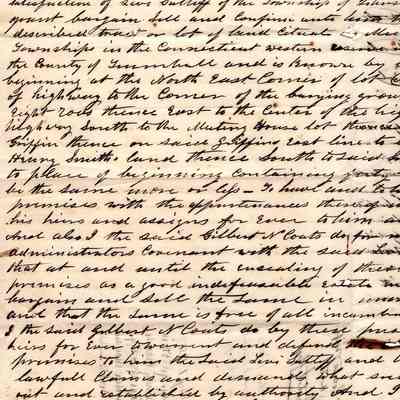 satisfaction of Levi Sutliff of the Township of
grant bargain sell and Confirm unto him
described tract or lot of land Cituate in
Townships in the Connecticut western reserve
the County of Trumbull and is Known by
beginning at the North East Corner of lot
of highway to the Corner of the burying
Eight rods thence East to the Center of the
highway South to the Meeting House lot thence
Griffin thence on said Griffing East line to
Henry Smiths land thence South to said
to place of beginning containing
be the same more or less - To have and to
premises with the appurtenances thereof
his heirs and assigns for Ever to him
And also I the said Gilbert N Coats do for
administrators Covenant with the said
that at and until the ensealing of these
premises as a good indefeasible Estate in
bargain and sell the Same in
and that the Same is free of all
I the said Gilbert N Coats do by these
heirs for Ever to warrant and defend the
premises to him the Said Levi Sutliff and
lawfull Claims and demands what
out and established by authority And I